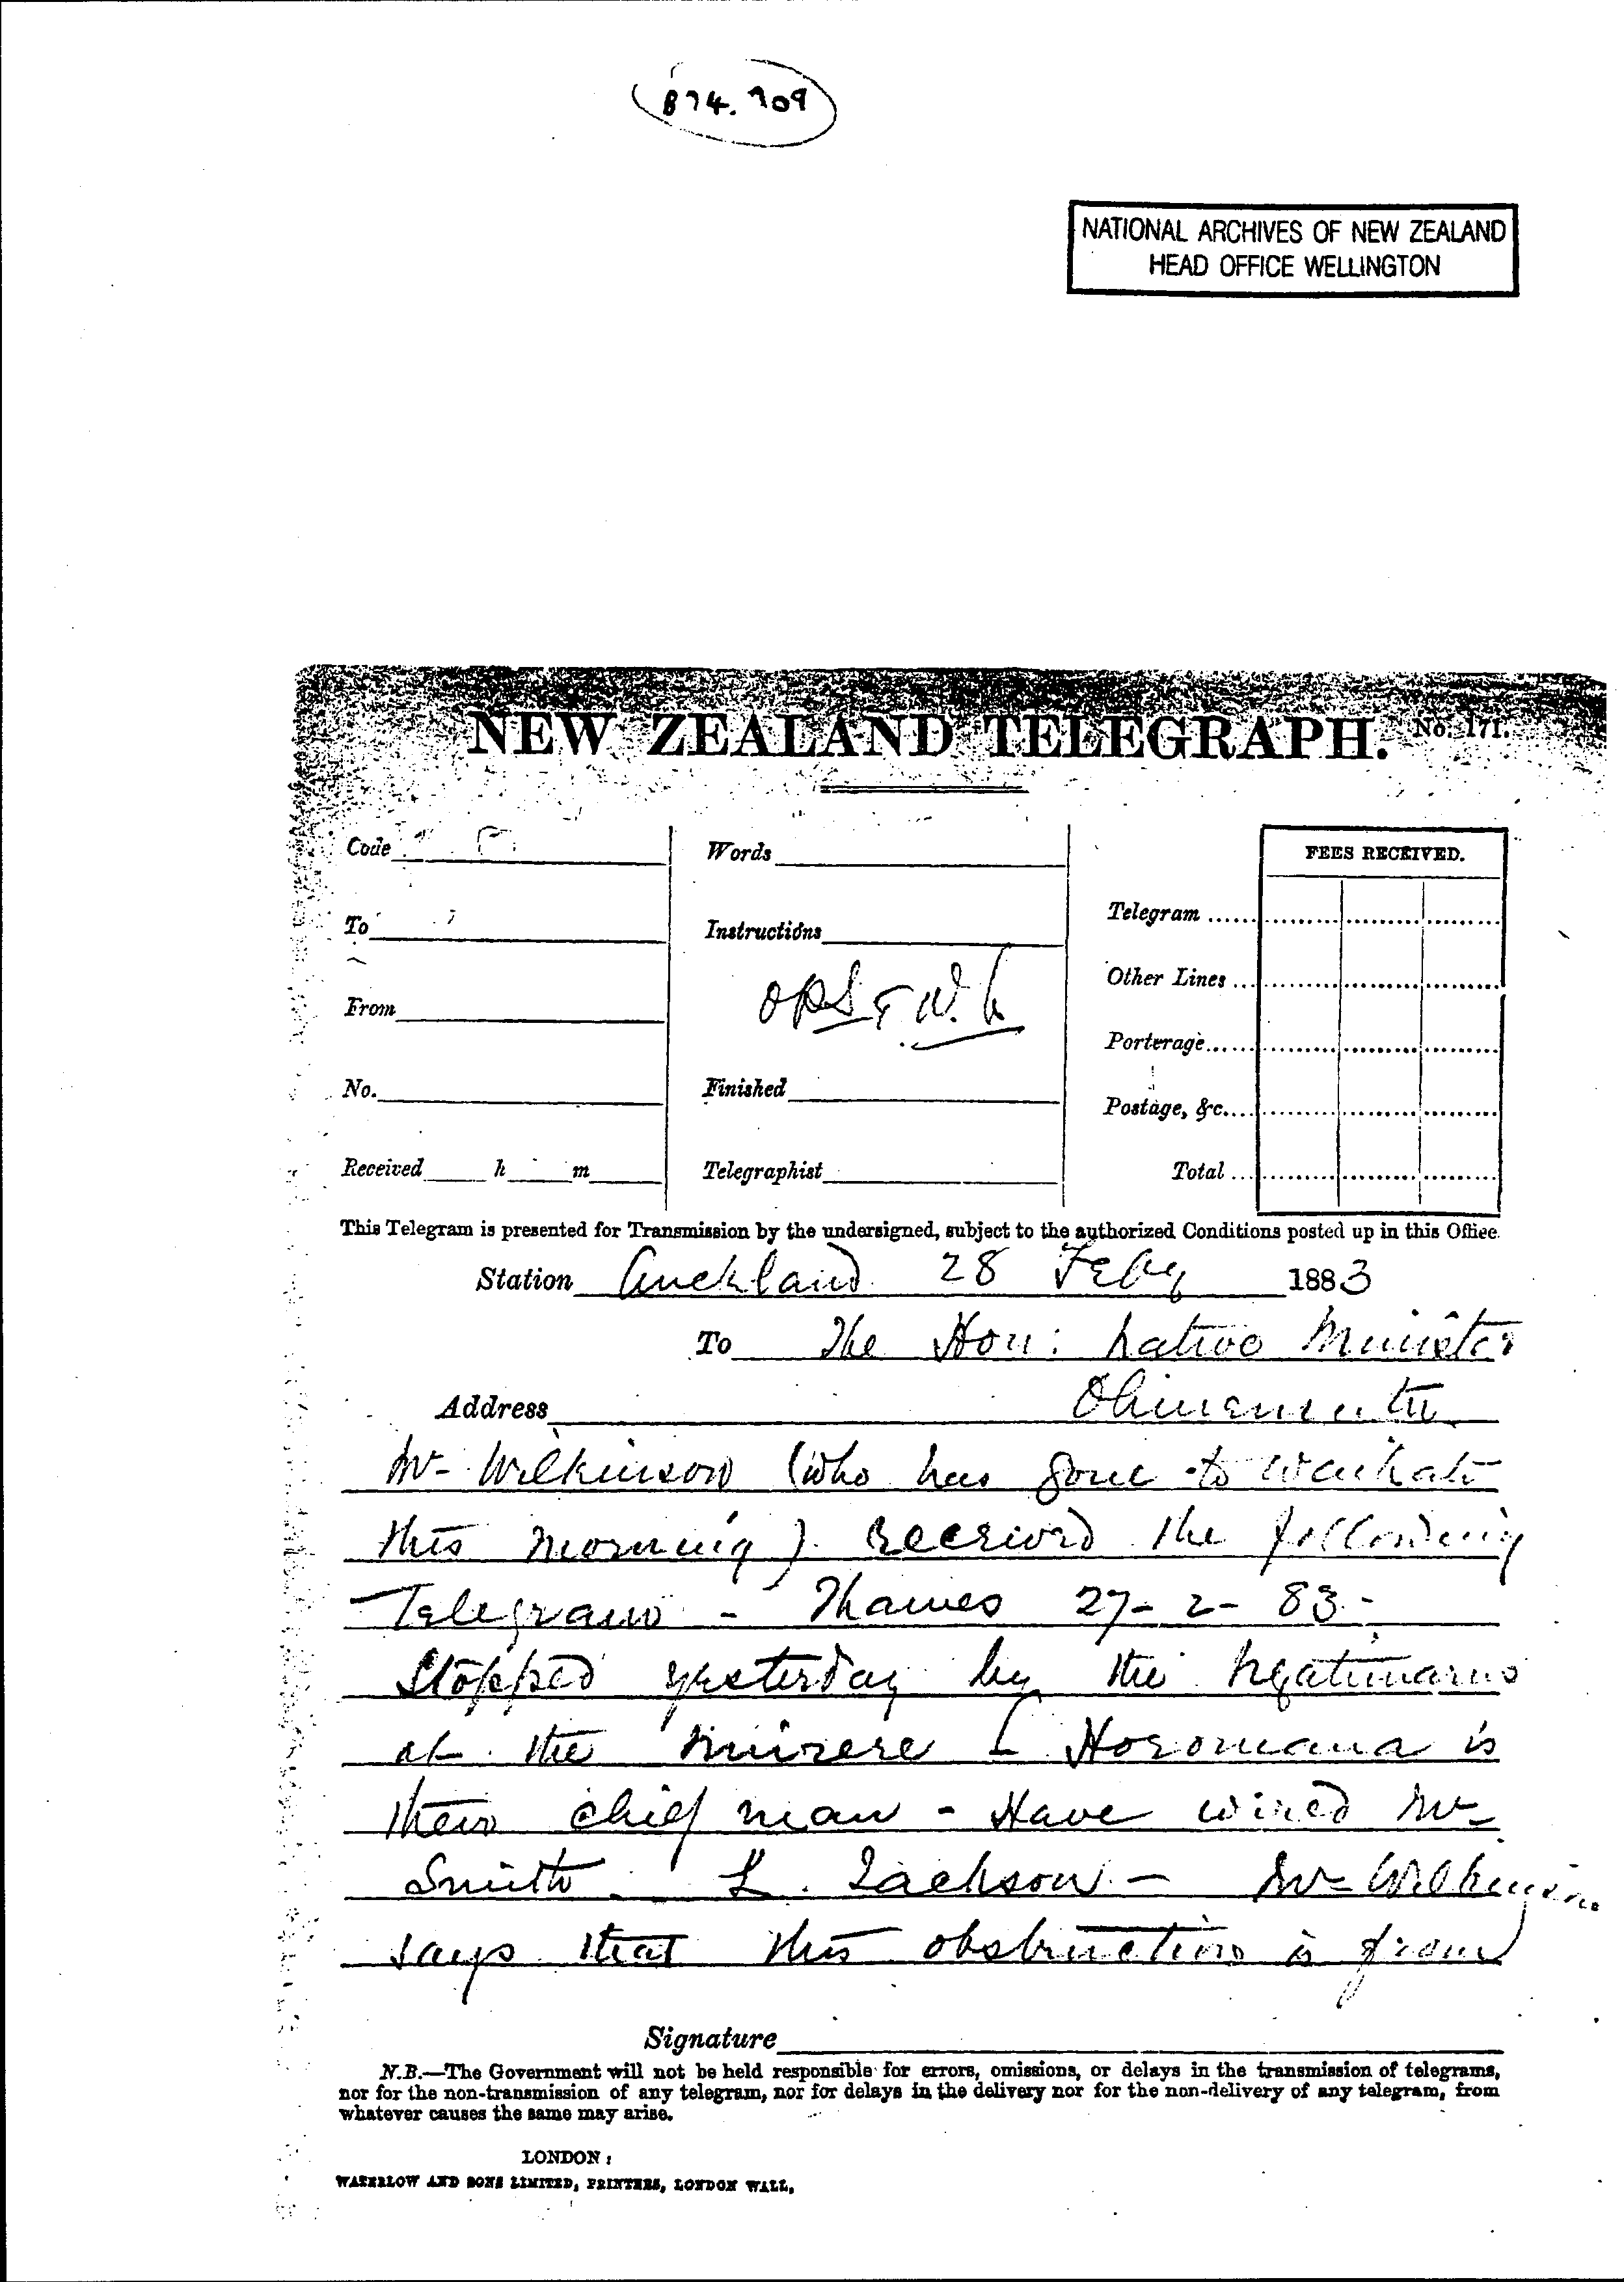 874.709
NATIONAL ARCHIVES OF NEW ZEALAND
HEAD OFFICE WELLINGTON
NEW ZEALAND TELEGRAPH. No. 171.
Code
Words
FEES RECEIVED.
To
Instructions
Telegram ......
Other Lines ...
From
Porterage......
No.
Finished
Postage, &c....
Received h m
Telegraphist
Total ...
This Telegram is presented for Transmission by the undersigned, subject to the authorized Conditions posted up in this Office.
Station Auckland 28 Feby 1883
To The Hon: Native Minister
Address Ohinemutu
Mr Wilkinson (who has gone to Waikato
this morning). received the following
Telegram - Thames 27-2-83-
Stopped yesterday by the Ngatimaru
at the . Horomana is
their chief man - Have wired Mr
Smith. L. Jackson - Mr Wilkinson
says that this obstruction is from
Signature
N.B.—The Government will not be held responsible for errors, omissions, or delays in the transmission of telegrams,
nor for the non-transmission of any telegram, nor for delays in the delivery nor for the non-delivery of any telegram, from
whatever causes the same may arise.
LONDON:
WATERLOW AND SONS LIMITED, PRINTERS, LONDON WALL,